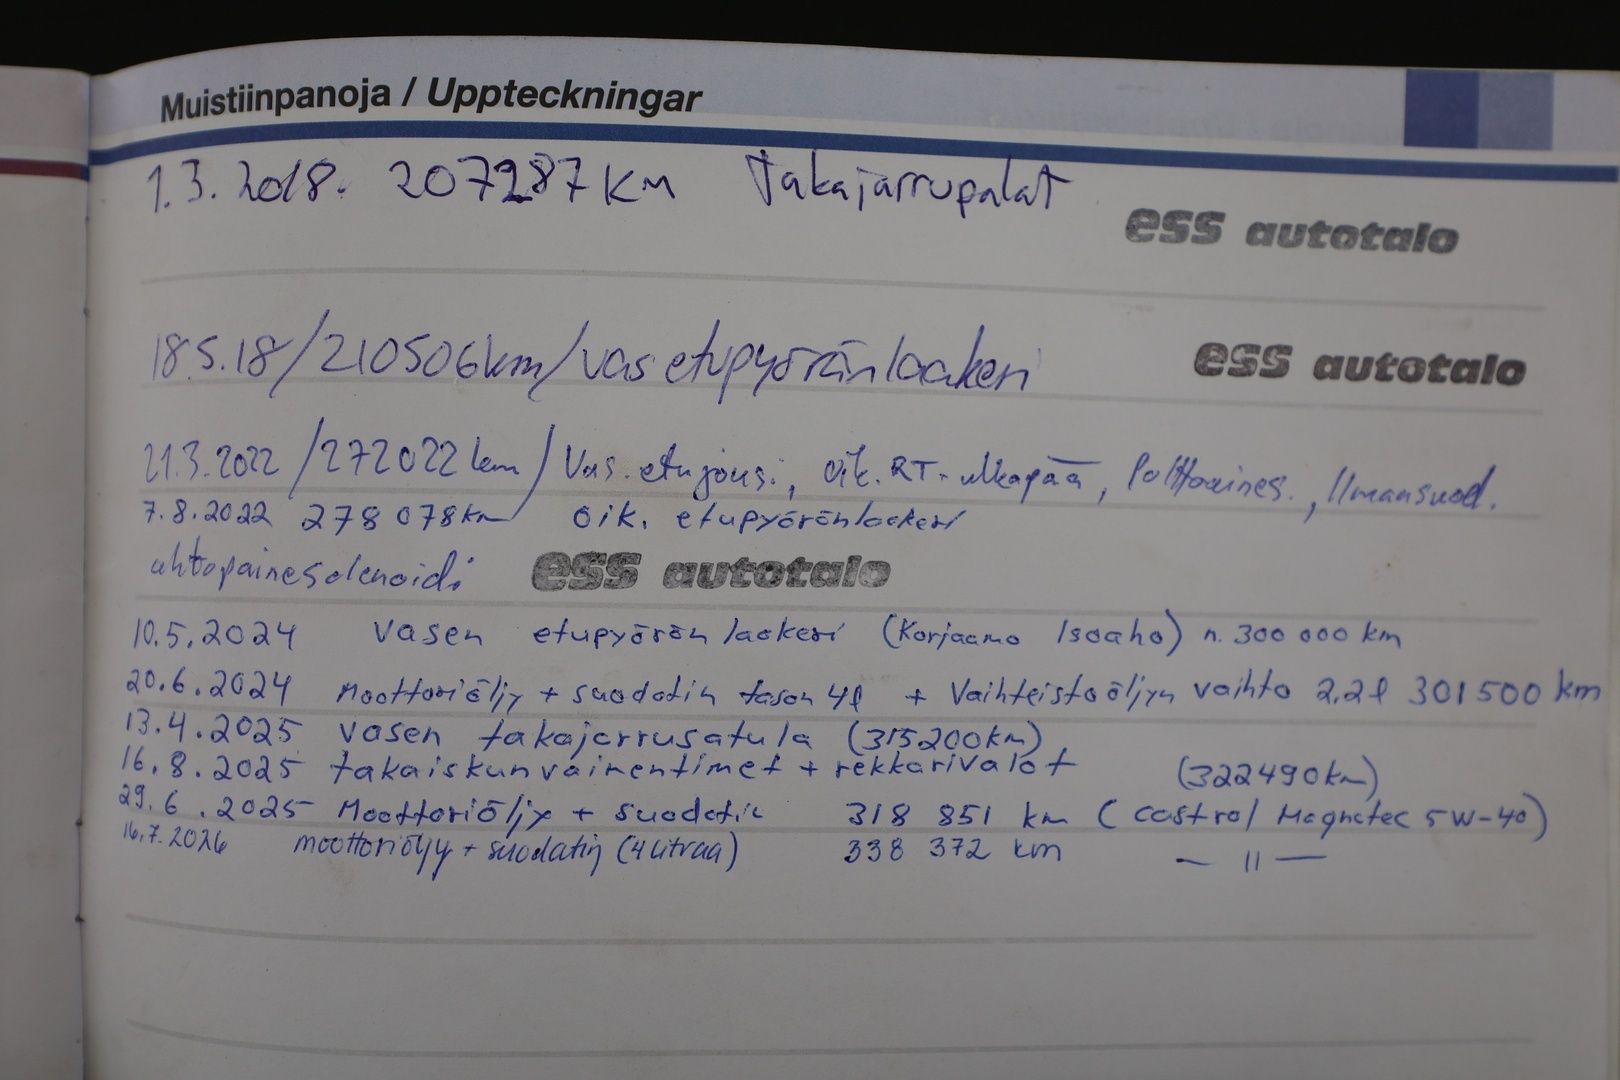 Muistiinpanoja / Uppteckningar
1.3.2018. 207287 KM Takajarrupalat
ess autotalo
18.5.18/210506km/vas etupyöränlaakeri
ess autotalo
21.3.2022 /272022 km/ Vas. etujousi, oik. RT-ulkopää, Polttoaines., Ilmansuod.
7.8.2022 278 078km oik. etupyöränlaakeri
ahtopainesolenoidi ess autotalo
10.5.2024 Vasen etupyörän laakeri (Korjaamo Isoaho) n. 300 000 km
20.6.2024 Moottoriöljy + suodatin tason 4l + Vaihteistoöljyn vaihto 2,2l 301500 km
13.4.2025 Vasen takajarrusatula (315200km)
16.8.2025 takaiskunvaimentimet + rekkarivalot (322490km)
29.6.2025 Moottoriöljy + suodatin 318 851 km (Castrol Magnatec 5W-40)
16.7.2026 moottoriöljy + suodatin (4 litraa) 338 372 km — 11 —